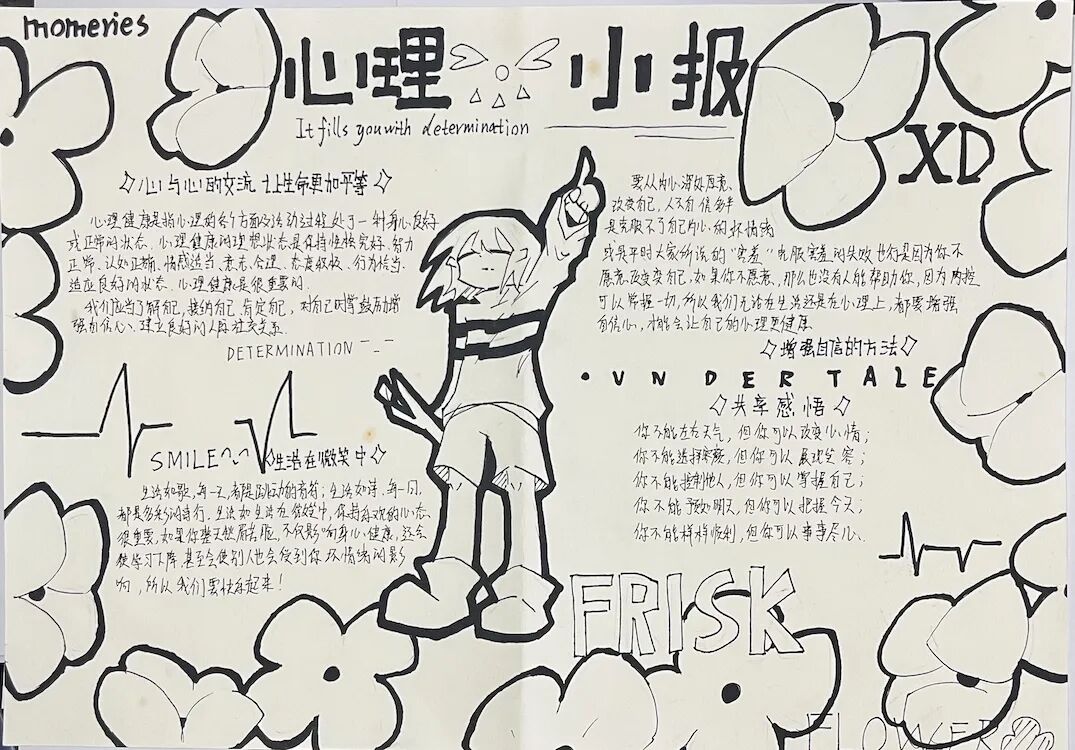 momeries
心理 小报
It fills you with determination
XD
心与心的交流 让生命更加平等
心理健康是指心理的各个方面及活动过程处于一种身心良好
或正常的状态、心理健康的理想状态是保持性格完好、智力
正常、认知正确、情感适当、意志合理、态度积极、行为恰当、
适应良好的状态、心理健康是很重要的
我们应当了解自己，接纳自己 肯定自己，对自己时常鼓励加增
强自信心、建立良好的人际社交关系
DETERMINATION
SMILE~~ 生活在微笑中
生活如歌，每一天，都是跳动的音符；生活如诗，每一周，
都是多彩的诗行。生活如生活在微笑中，保持喜欢的心态
很重要，如果你整天愁眉苦脸，不仅影响身心健康，还会
使学习下降，甚至会使别人也会受到你坏情绪的影
响，所以我们要快乐起来！
要从内心深处愿意、
改变自己，人不自信多半
是克服不了自己内心的坏情绪
或是平时大家所说的“害羞”克服害羞的失败也许是因为你不
愿意改变自己，如果你不愿意，那么也没有人能帮助你，因为内控
可以掌握一切，所以我们无论在生活还是在心理上，都要增强
自信心，才能会让自己的心理更健康
增强自信的方法
·UNDERTALE
共享感悟
你不能左右天气，但你可以改变心情；
你不能选择容颜，但你可以展现笑容；
你不能控制他人，但你可以掌握自己；
你不能预知明天，但你可以把握今天；
你不能样样顺利，但你可以事事尽心。
FRISK
FLOWER